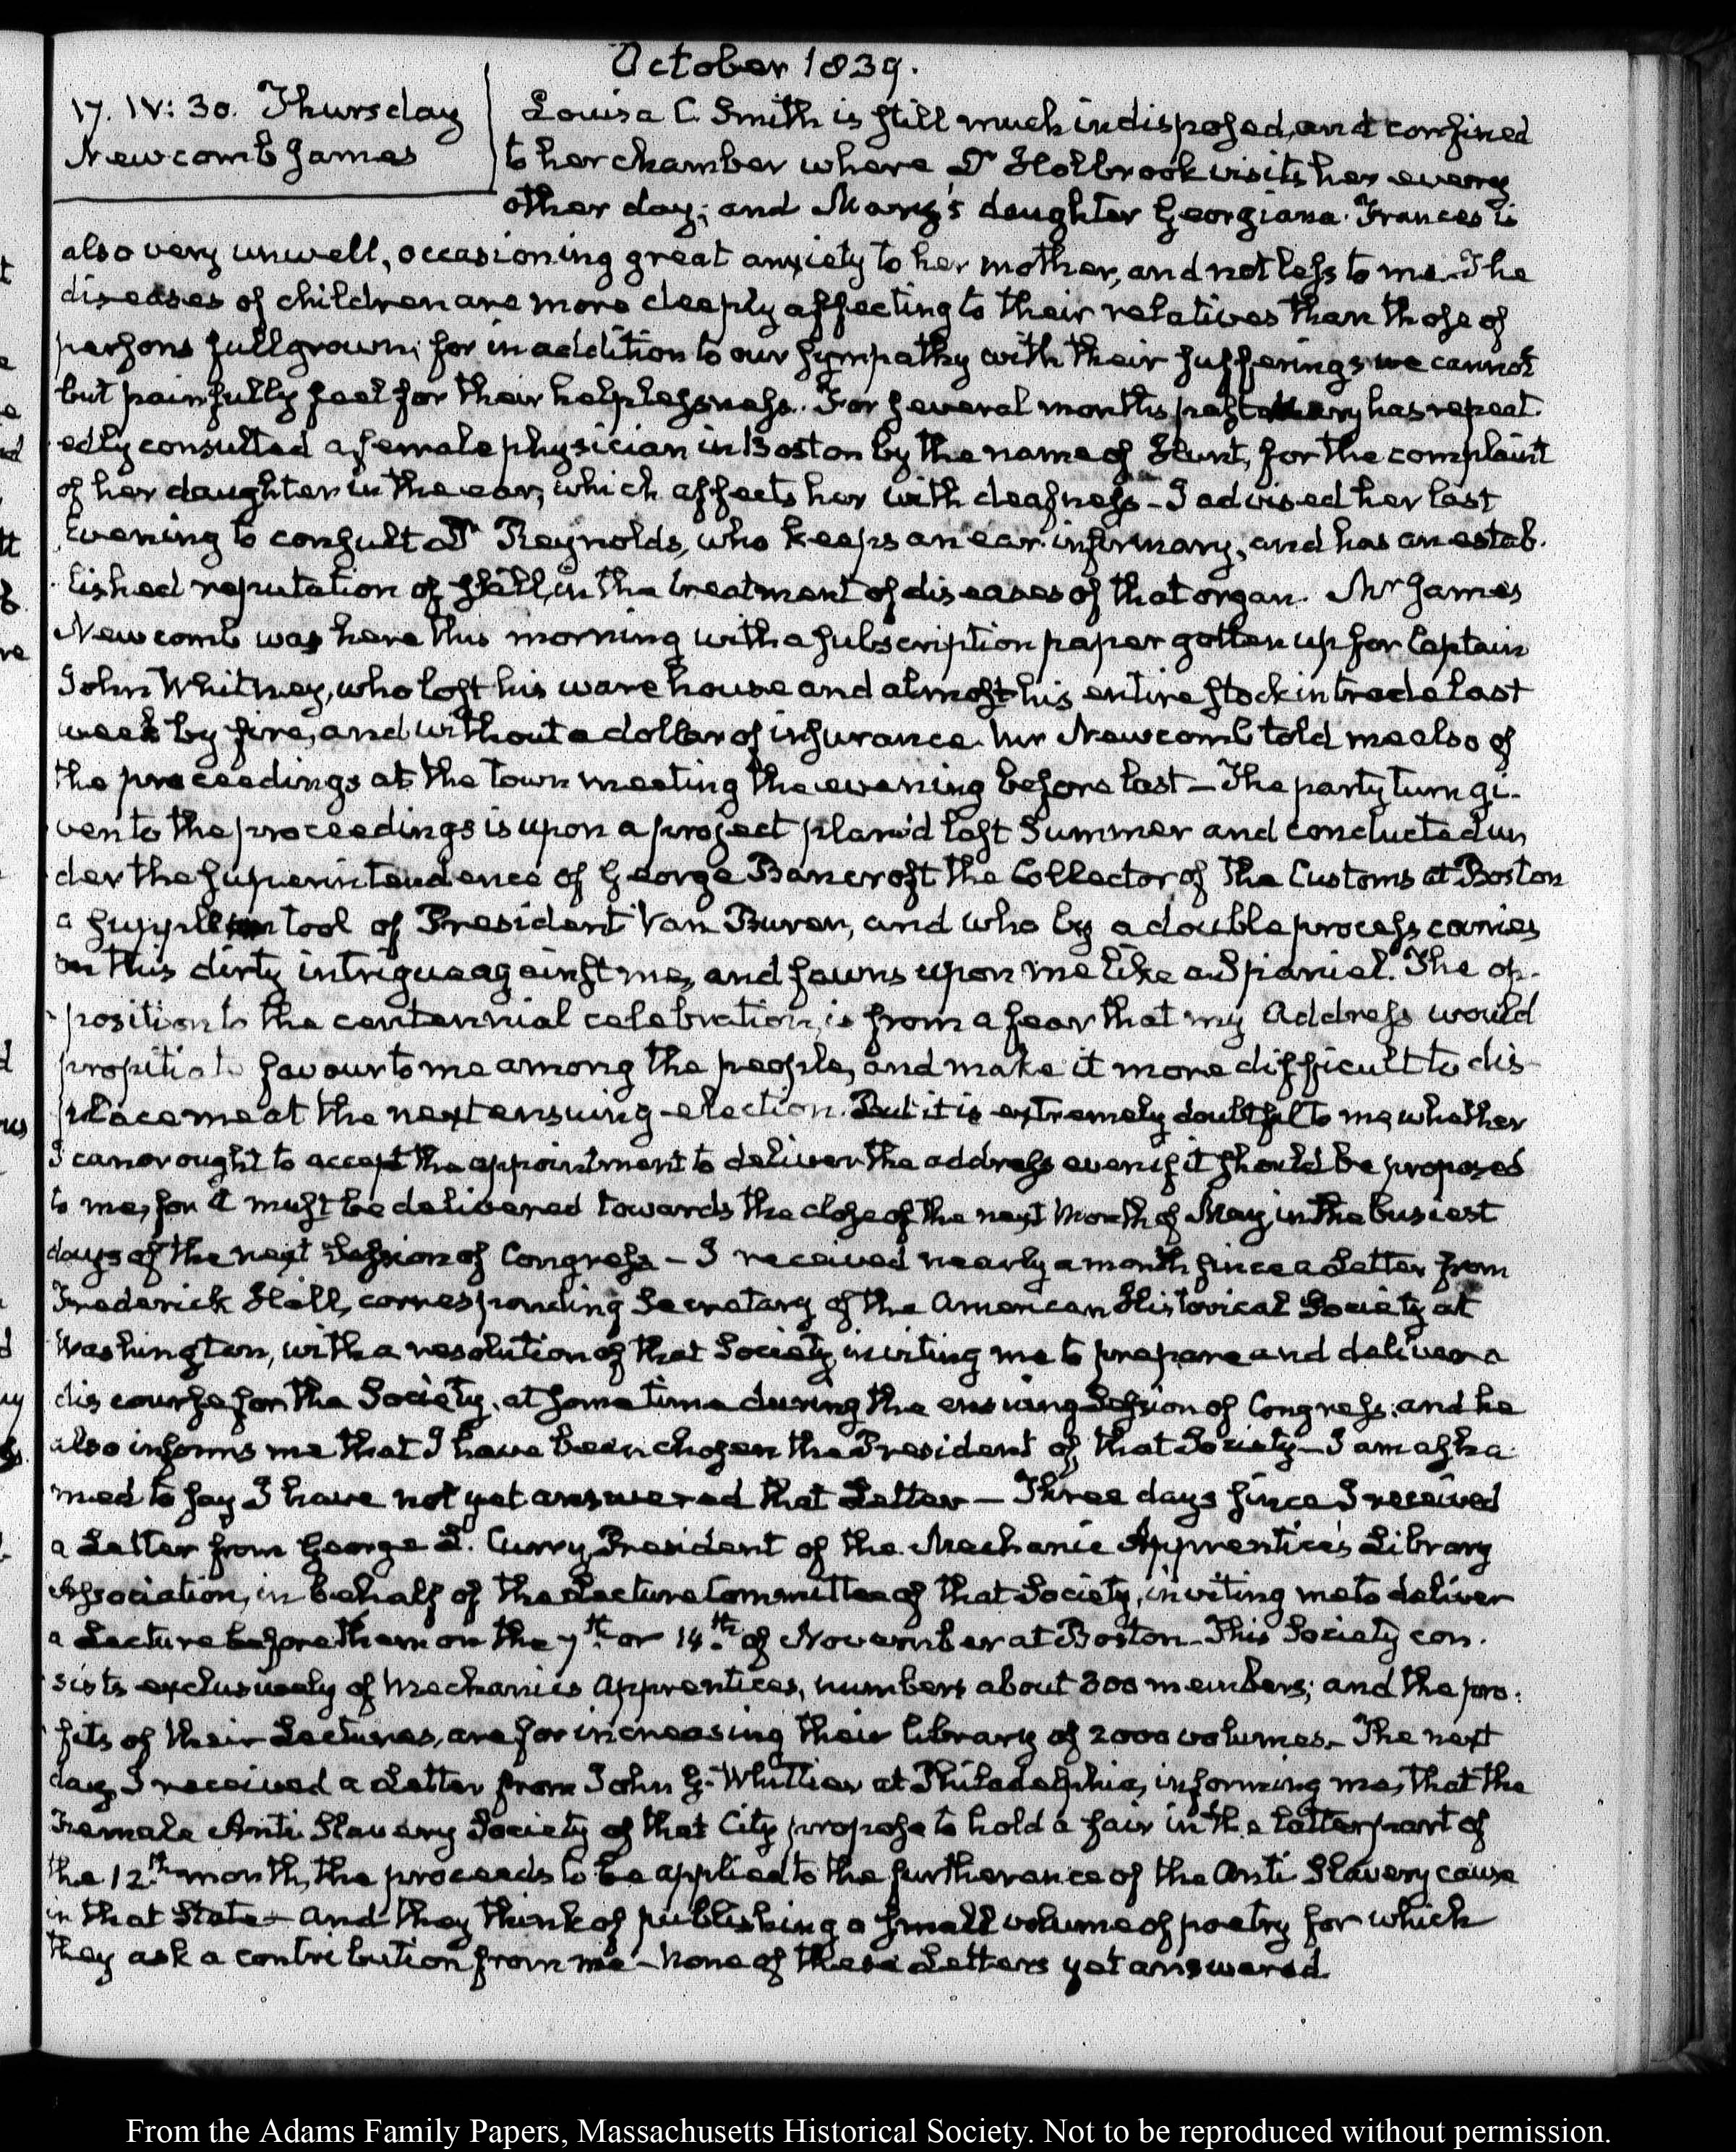 October 1839.
17. IV: 30. Thursday
Newcomb James
Louisa C. Smith is still much indisposed, and confined
to her chamber where Dr Holbrook visits her every
other day; and Mary's daughter Georgiana Frances is
also very unwell, occasioning great anxiety to her mother, and not less to me. The
diseases of children are more deeply affecting to their relatives than those of
persons full grown; for in addition to our sympathy with their sufferings we cannot
but painfully feel for their helplessness. For several months past Mary has repeat-
edly consulted a female physician in Boston by the name of Hunt, for the complaint
of her daughter in the ear, which affects her with deafness - I advised her last
Evening to consult Dr Reynolds, who keeps an ear infirmary, and has an estab-
lished reputation of skill, in the treatment of diseases of that organ. Mr James
Newcomb was here this morning with a subscription paper gotten up for Captain
John Whitney, who lost his warehouse and almost his entire stock in trade last
week by fire, and without a dollar of insurance. Mr Newcomb told me also of
the proceedings at the town meeting the evening before last - The party turn gi-
ven to the proceedings is upon a project plann'd last Summer and conducted un
der the superintendence of George Bancroft the Collector of the Customs at Boston
a supple tool of President Van Buren, and who by a double process carries
on this dirty intrigue against me, and fawns upon me like a Spaniel. The op-
position to the centennial celebration, is from a fear that my Address would
propitiate favour to me among the people, and make it more difficult to dis-
place me at the next ensuing election. But it is extremely doubtful to me whether
I can or ought to accept the appointment to deliver the address even if it should be proposed
to me, for it must be delivered towards the close of the next Month of May, in the busiest
days of the next Session of Congress - I received nearly a month since a Letter from
Frederick Hall, corresponding Secretary of the American Historical Society at
Washington, with a resolution of that Society inviting me to prepare and deliver a
discourse for the Society, at some time during the ensuing Session of Congress, and he
also informs me that I have been chosen the President of that Society - I am asha-
med to say I have not yet answered that Letter - Three days since I received
a Letter from George L. Curry, President of the Mechanic Apprentice's Library
Association, in behalf of the Lecture Committee of that Society, inviting me to deliver
a Lecture before them on the 7th or 14th of November at Boston - This Society con-
sists exclusively of Mechanics Apprentices, numbers about 300 members; and the pro-
fits of their Lectures, are for increasing their library of 2000 volumes. - The next
day, I received a Letter from John G. Whittier at Philadelphia, informing me, that the
Female Anti Slavery Society of that City propose to hold a fair in the latter part of
the 12th month, the proceeds to be applied to the furtherance of the Anti Slavery cause
in that State - and they think of publishing a small volume of poetry for which
they ask a contribution from me - None of these Letters yet answered.
From the Adams Family Papers, Massachusetts Historical Society. Not to be reproduced without permission.